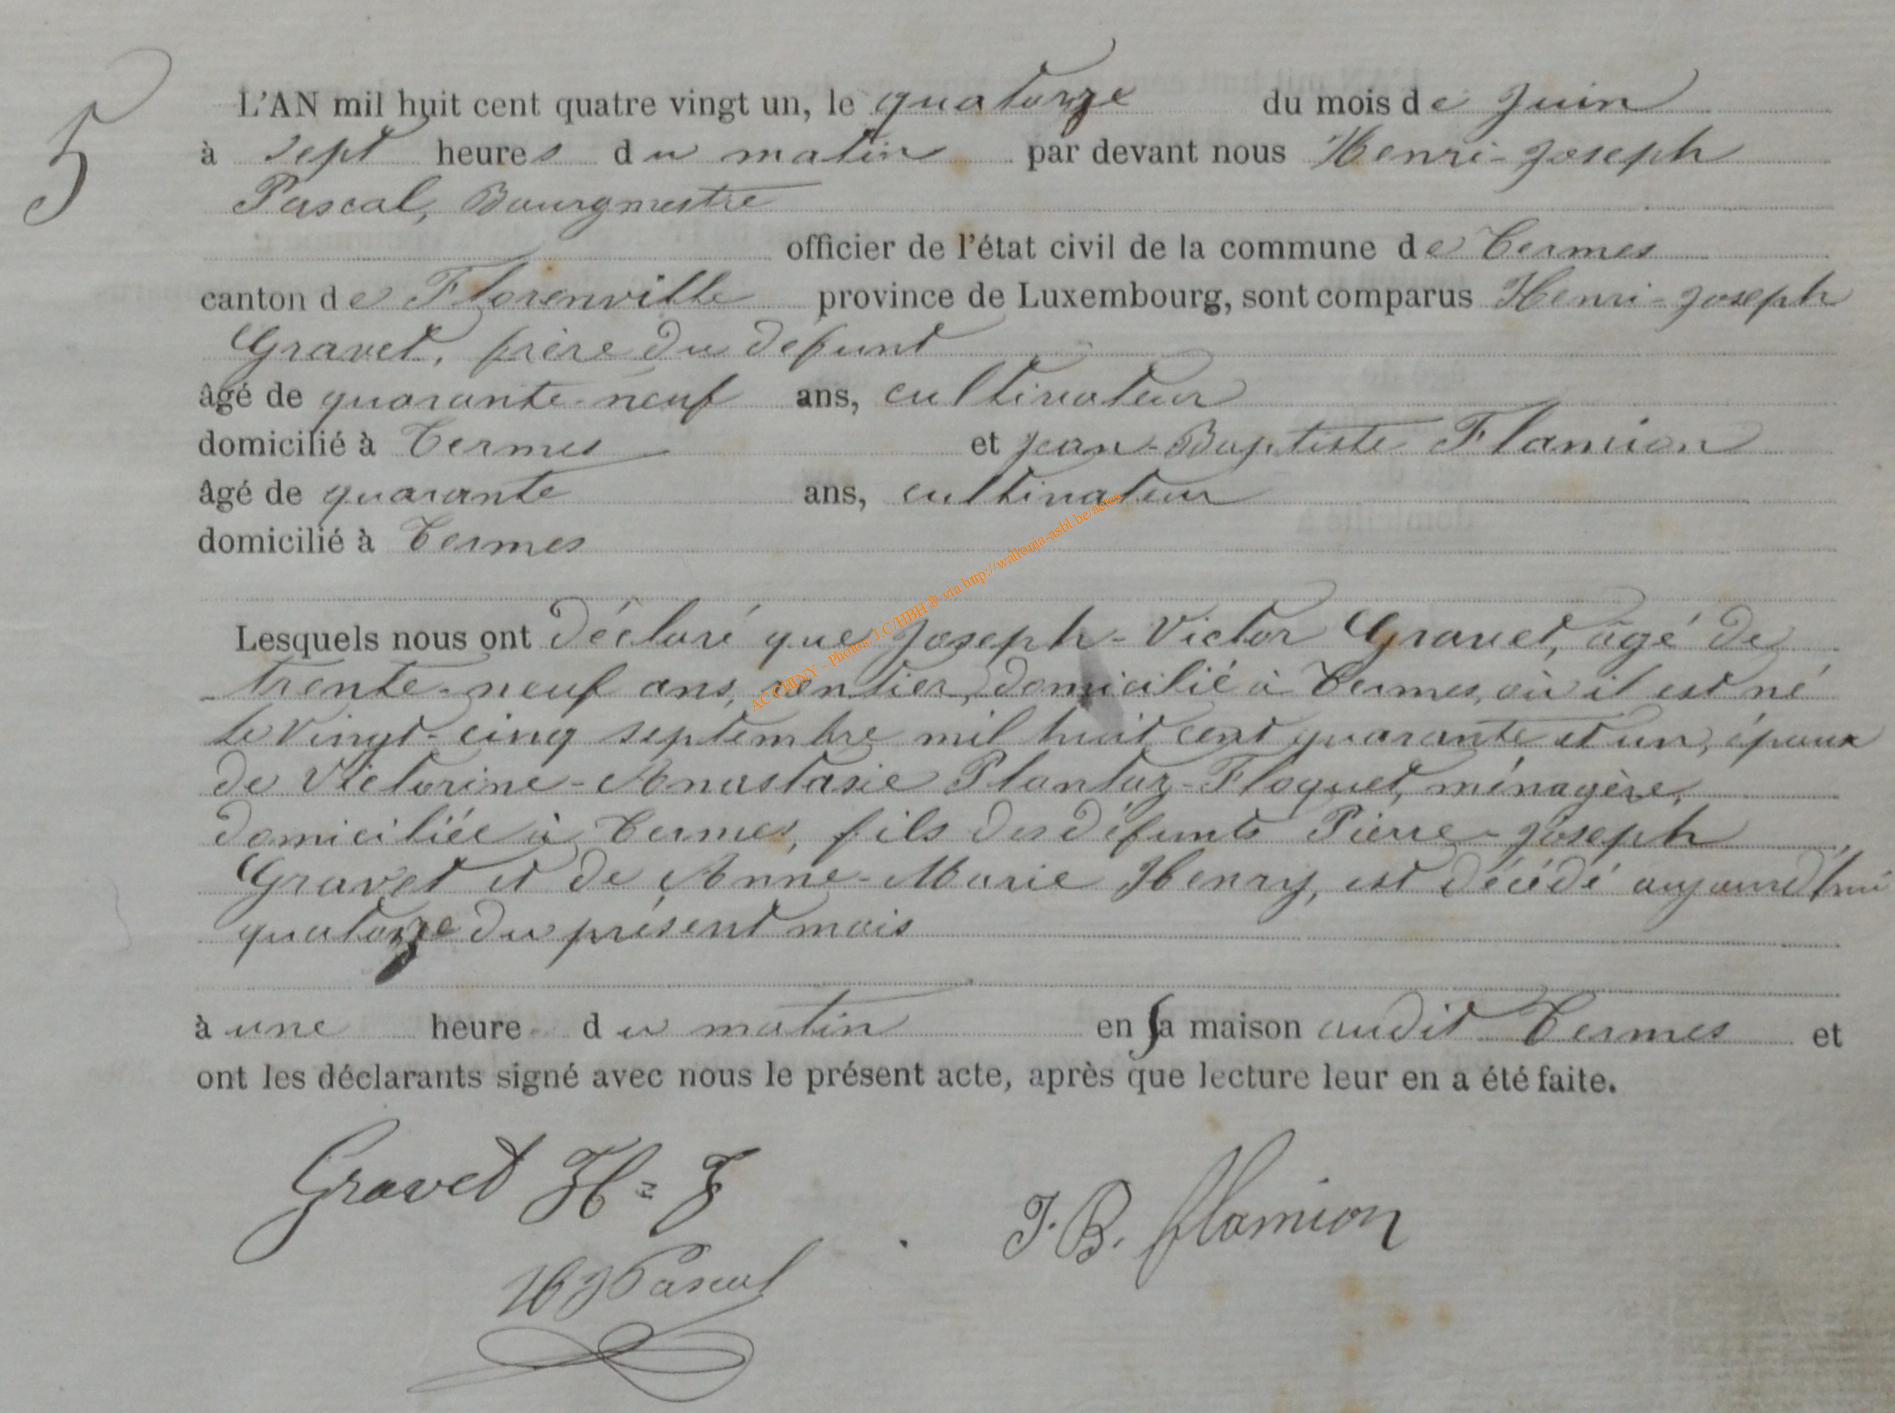 5
L'AN mil huit cent quatre vingt un, le quatorze du mois de Juin
à sept heures du matin par devant nous Henri-Joseph
Pascal, Bourgmestre
officier de l'état civil de la commune de Termes
canton de Florenville province de Luxembourg, sont comparus Henri-Joseph
Gravet, frère du défunt
âgé de quarante-neuf ans, cultivateur
domicilié à Termes et Jean-Baptiste Flamion
âgé de quarante ans, cultivateur
domicilié à Termes
Lesquels nous ont déclaré que Joseph-Victor Gravet, âgé de
trente-neuf ans, rentier, domicilié à Termes, où il est né
le vingt-cinq septembre mil huit cent quarante et un, époux
de Victorine-Anastasie Plantaz-Floquet, ménagère,
domiciliée à Termes, fils des défunts Pierre-Joseph
Gravet et de Anne-Marie Henry, est décédé aujourd'hui
quatorze du présent mois
à une heure du matin en sa maison audit Termes et
ont les déclarants signé avec nous le présent acte, après que lecture leur en a été faite.
Gravet H=J
J.B. flamion
HJ Pascal
AC CHINY - Photos J.C HBH ® via http://wallonia-asbl.be/actes